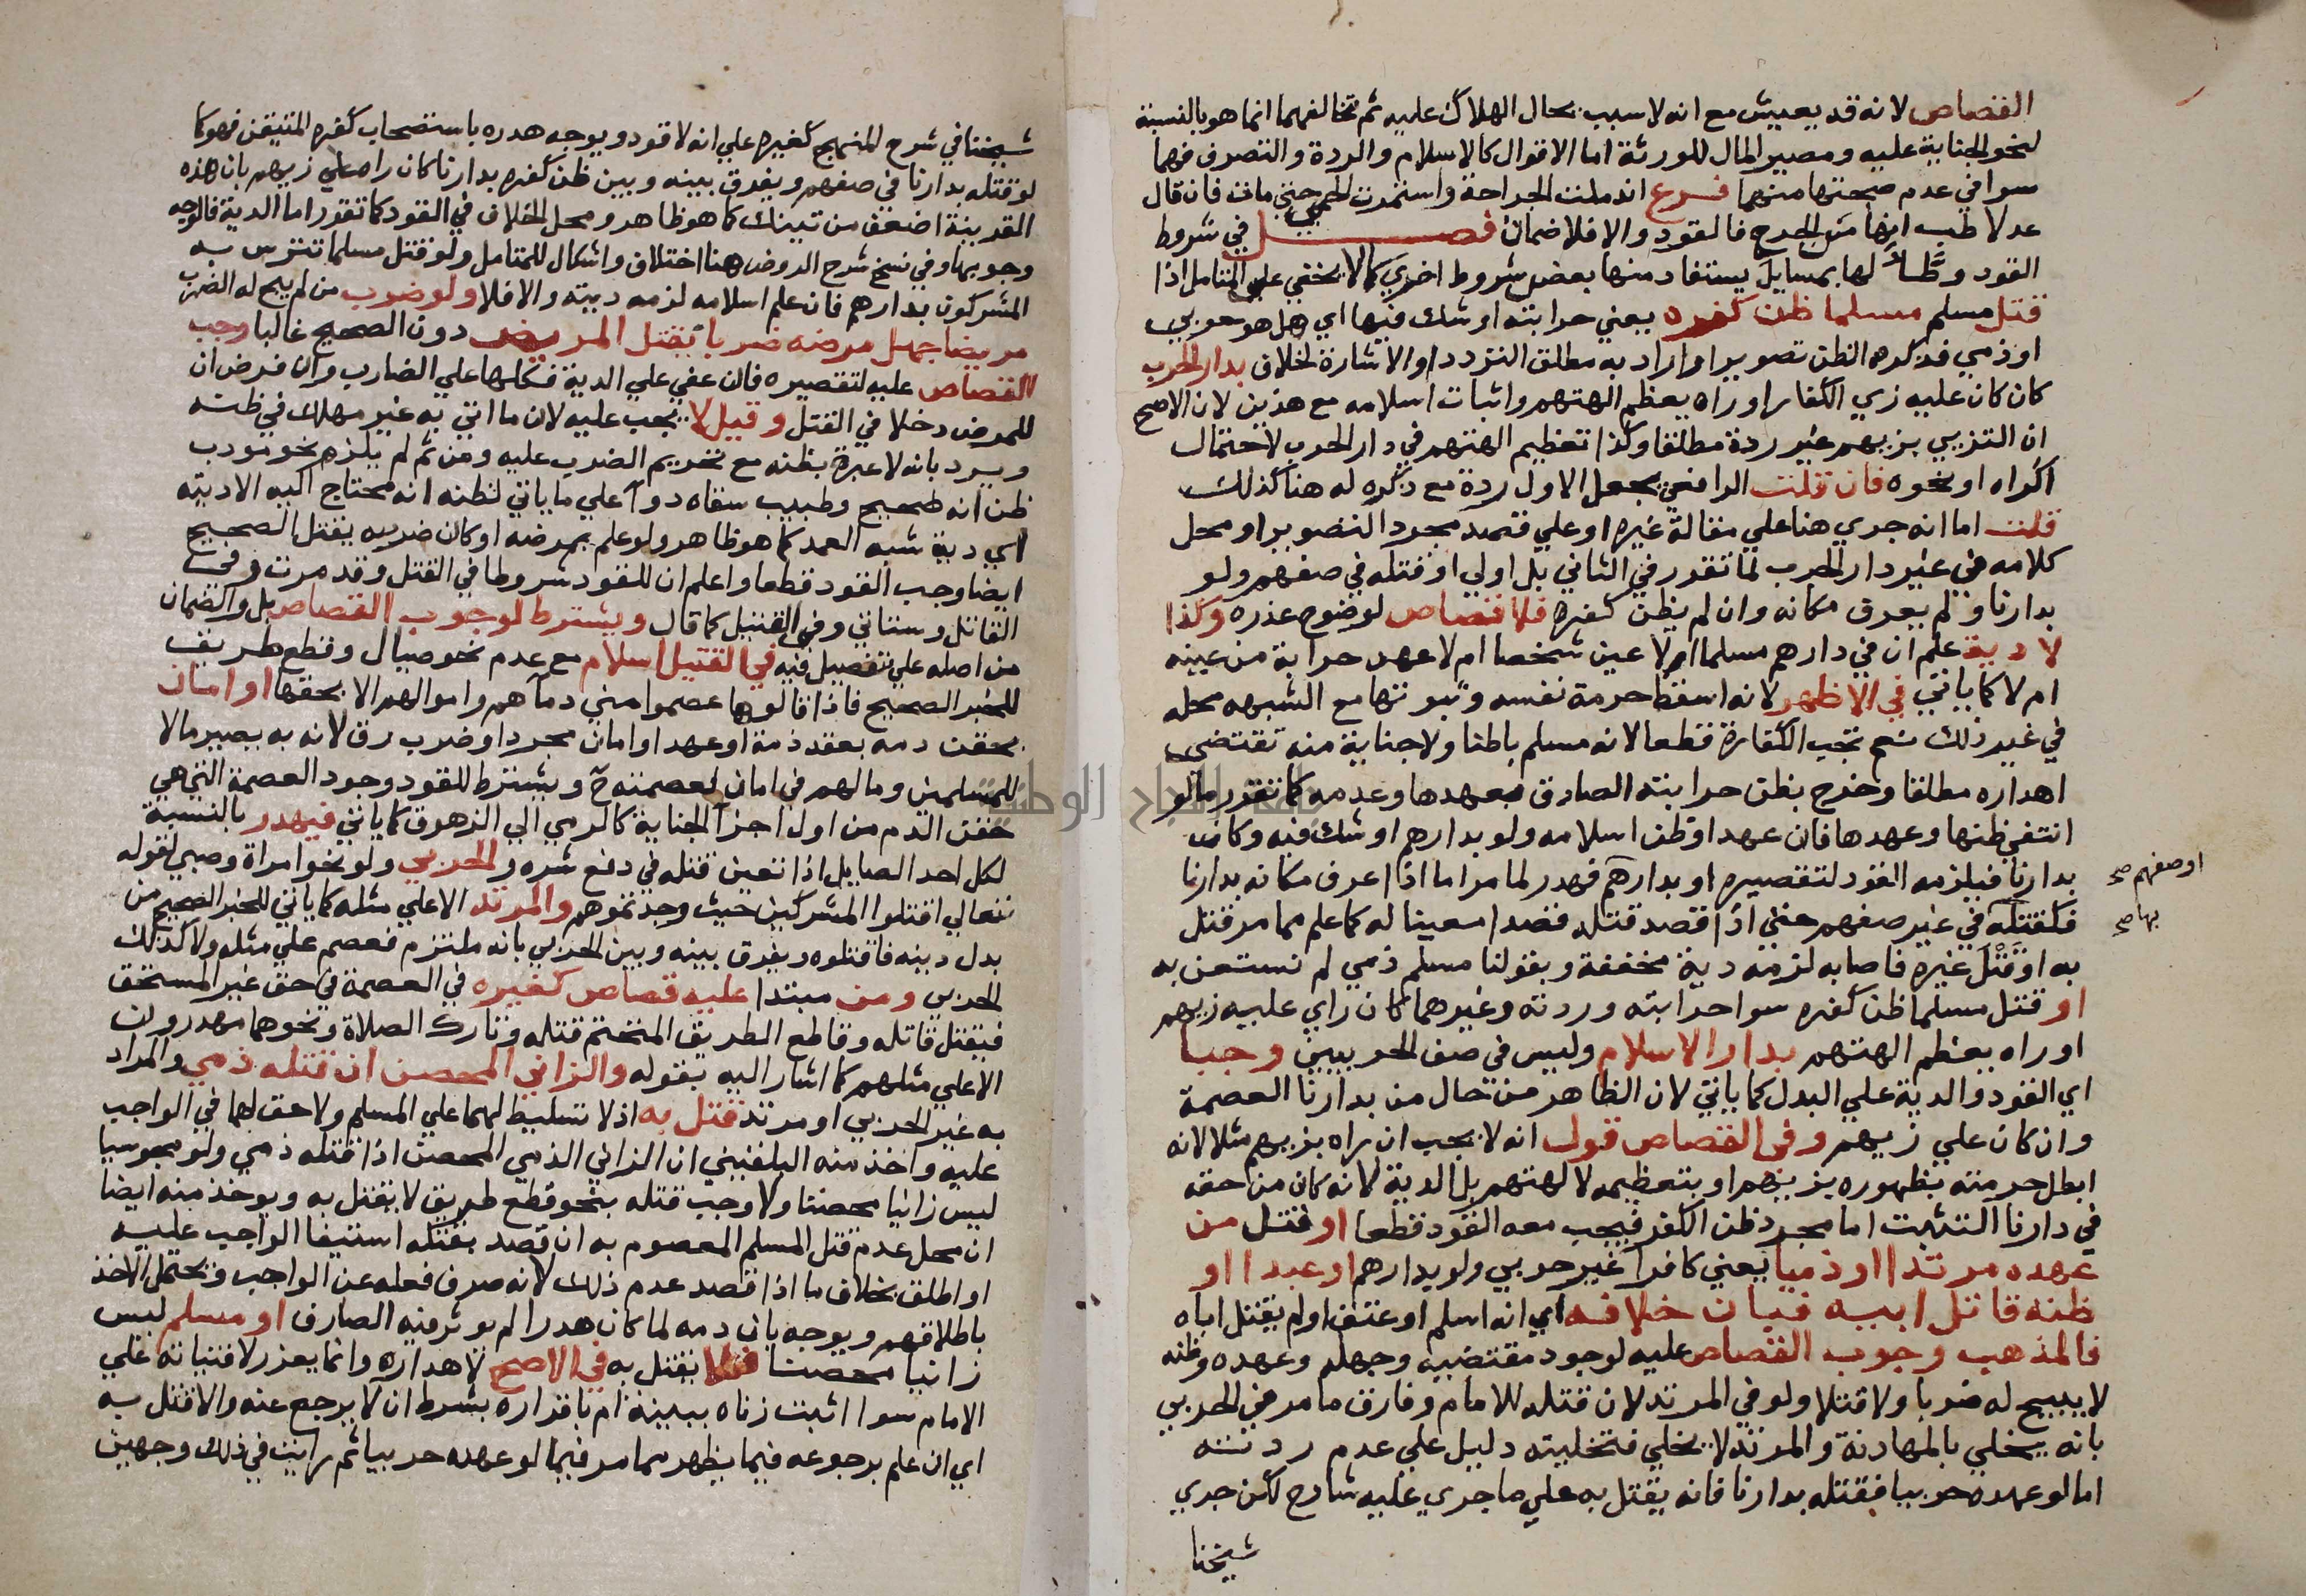 القصاص لانه قد يعيش مع انه لا سبب يحال الهلاك عليه ثم تخالفهما انما هو بالنسبة
لنحو الجناية عليه ومصير المال للورثة اما الاقوال كالاسلام والردة والتصرف فهما
سوا في عدم صحتها منهما فرع اندملت الجراحة واستمرت الحمي حتي مات فان قال
عدلا طب انها من الجرح فالقود والا فلا ضمان فصل في شروط
القود وطأ لها بمسايل يستفاد منها بعض شروط اخري كما لا يخفي علي المتامل اذا
قتل مسلم مسلما ظن كفره يعني حرابته او شك فيها اي هل هو حربي
او ذمي فذكره الظن تصوير او اراد به مطلق التردد او الاشارة لخلاف بدار الحرب
كان كان عليه زي الكفار او راه يعظم الهتهم واثبات اسلامه مع هذين لان الاصح
ان التزيي بزيهم غير ردة مطلقا وكذا تعظيم الهتهم في دار الحرب لاحتمال
اكراه او نحوه فان قلت الرافعي يجعل الاول ردة مع ذكره له هنا كذلك
قلت اما انه جري هنا علي مقالة غيره او علي قصد مجرد التصوير او محل
كلامه في غير دار الحرب لما تقرر في الثاني بل اولي او قتله في صفهم ولو
بدارنا ولم يعرف مكانه وان لم يظن كفره فلا قصاص لوضوح عذره وكذا
لا دية علم ان في دارهم مسلما ام لا عين شخصا ام لا عهد حرابة من عينه
ام لا كما ياتي في الاظهر لانه اسقط حرمة نفسه وثبوتها مع الشبهه محله
في غير ذلك نعم تجب الكفارة قطعا لانه مسلم باطنا ولا جناية منه تقتضي
اهداره مطلقا وخرج بظن حرابته الصادق بعهدها وعدمه كما تقرر ما لو
انتفي ظنها وعهدها فان عهد او ظن اسلامه ولو بدارهم او شك فيه وكان
بدارنا فيلزمه القود لتقصيره او بدارهم فهدر لما مر اما اذا عرف مكانه بدارنا
او صفهم صح
فكقتله في غير صفهم حتي اذا قصد قتله قصدا معينا له كما علم مما مر قتل
بها صح
به او قتل غيره فاصابه لزمه دية مخففة وبقولنا مسلم ذمي لم نستعن به
او قتل مسلما ظن كفره سوا حرابته وردته وغيرهما كان راي عليه زيهم
او راه يعظم الهتهم بدار الاسلام وليس في صف الحربيين وجبا
اي القود والدية علي البدل كما ياتي لان الظاهر من حال من بدارنا العصمة
وان كان علي زيهم وفي القصاص قول انه لا يجب ان راه بزيهم مثلا لانه
ابطل حرمته بظهوره بزيهم او بتعظيمه لالهتهم بل الدية لانه كان من حقه
في دارنا التثبت اما مجرد ظن الكفر فيجب معه القود قطعا او قتل من
عهده مرتدا او ذميا يعني كافرا غير حربي ولو بدارهم او عبدا او
ظنه قاتل ابيه فبان خلافه اي انه اسلم او عتق او لم يقتل اباه
فالمذهب وجوب القصاص عليه لوجود مقتضيه وجهله وعهده وظنه
لا يبيح له ضربا ولا قتلا ولو في المرتد لان قتله للامام وفارق ما مر في الحربي
بانه يخلي بالمهادنة والمرتد لا يخلي فتخليته دليل علي عدم ردته
اما لو عهده حربيا فقتله بدارنا فانه يقتل به علي ما جري عليه شارح لكن جري
شيخنا
شيخنا في شرح المنهج كغيره علي انه لا قود ويوجه هدره باستصحاب كفره المتيقن فهو كما
لو قتله بدارنا في صفهم ويفرق بينه وبين ظن كفره بدارنا كان راه علي زيهم بان هذه
القرينة اضعف من تينك كما هو ظاهر ومحل الخلاف في القود كما تقرر اما الدية فالوجه
وجوبها وفي نسخ شرح الروض هنا اختلاف واشكال للمتامل ولو قتل مسلما تترس به
المشركون بدارهم فان علم اسلامه لزمه ديته والا فلا ولو ضرب من لم يبح له الضرب
مريضا جهل مرضه ضربا يقتل المريض دون الصحيح غالبا وجب
القصاص عليه لتقصيره فان عفي علي الدية فكلها علي الضارب وان فرض ان
للمرض دخلا في القتل وقيل لا يجب عليه لان ما اتي به غير مهلك في ظنه
ويرد بانه لا عبرة بظنه مع تحريم الضرب عليه ومن ثم لم يلزم نحو مودب
ظن انه صحيح وطبيب سقاه دوا علي ما ياتي لظنه انه محتاج اليه الا ديته
اي دية شبه العمد كما هو ظاهر ولو علم بمرضه او كان ضربه يقتل الصحيح
ايضا وجب القود قطعا واعلم ان للقود شروطا في القتل وقد مرت وفي
القاتل وستاتي وفي القتيل كما قال ويشترط لوجوب القصاص بل والضمان
من اصله علي تفصيل فيه في القتيل اسلام مع عدم نحو صيال وقطع طريق
للخبر الصحيح فاذا قالوها عصموا مني دماهم واموالهم الا بحقها او امان
يحقن دمه بعقد ذمة او عهد او امان مجرد او ضرب رق لانه به يصير مالا
للمسلمين ومالهم في امان لعصمته ح ويشترط للقود وجود العصمة التي هي
حقن الدم من اول اجزا الجناية كالرمي الي الزهوق كما ياتي فيهدر بالنسبة
لكل احد الصايل اذا تعين قتله في دفع شره والحربي ولو نحو امراة وصبي لقوله
تعالي اقتلوا المشركين حيث وجدتموهم والمرتد الا علي مثله كما ياتي للخبر الصحيح من
بدل دينه فاقتلوه ويفرق بينه وبين الحربي بانه ملتزم فعصم علي مثله ولا كذلك
الحربي ومن مبتدا عليه قصاص كغيره في العصمة في حق غير المستحق
فيقتل قاتله وقاطع الطريق المتحتم قتله وتارك الصلاة ونحوهما مهدرون
الا علي مثلهم كما اشار اليه بقوله والزاني المحصن ان قتله ذمي والمراد
به غير الحربي او مرتد قتل به اذ لا تسليط لهما علي المسلم ولا حق لهما في الواجب
عليه واخذ منه البلقيني ان الزاني الذمي المحصن اذا قتله ذمي ولو مجوسيا
ليس زانيا محصنا ولا وجب قتله بنحو قطع طريق لا يقتل به ويوخذ منه ايضا
ان محل عدم قتل المسلم المعصوم به ان قصد بقتله استيفا الواجب عليه
او اطلق بخلاف ما اذا قصد عدم ذلك لانه صرف فعله عن الواجب ويحتمل الاخذ
باطلاقهم ويوجه بان دمه لما كان هدرا لم يوثر فيه الصارف او مسلم ليس
زانيا محصنا فلا يقتل به في الاصح لاهداره وانما يعزر لافتياته علي
الامام سوا اثبت زناه ببينة ام باقراره بشرط ان لا يرجع عنه والا قتل به
اي ان علم برجوعه فيما يظهر مما مر فيما لو عهده حربيا ثم رايت في ذلك وجهين